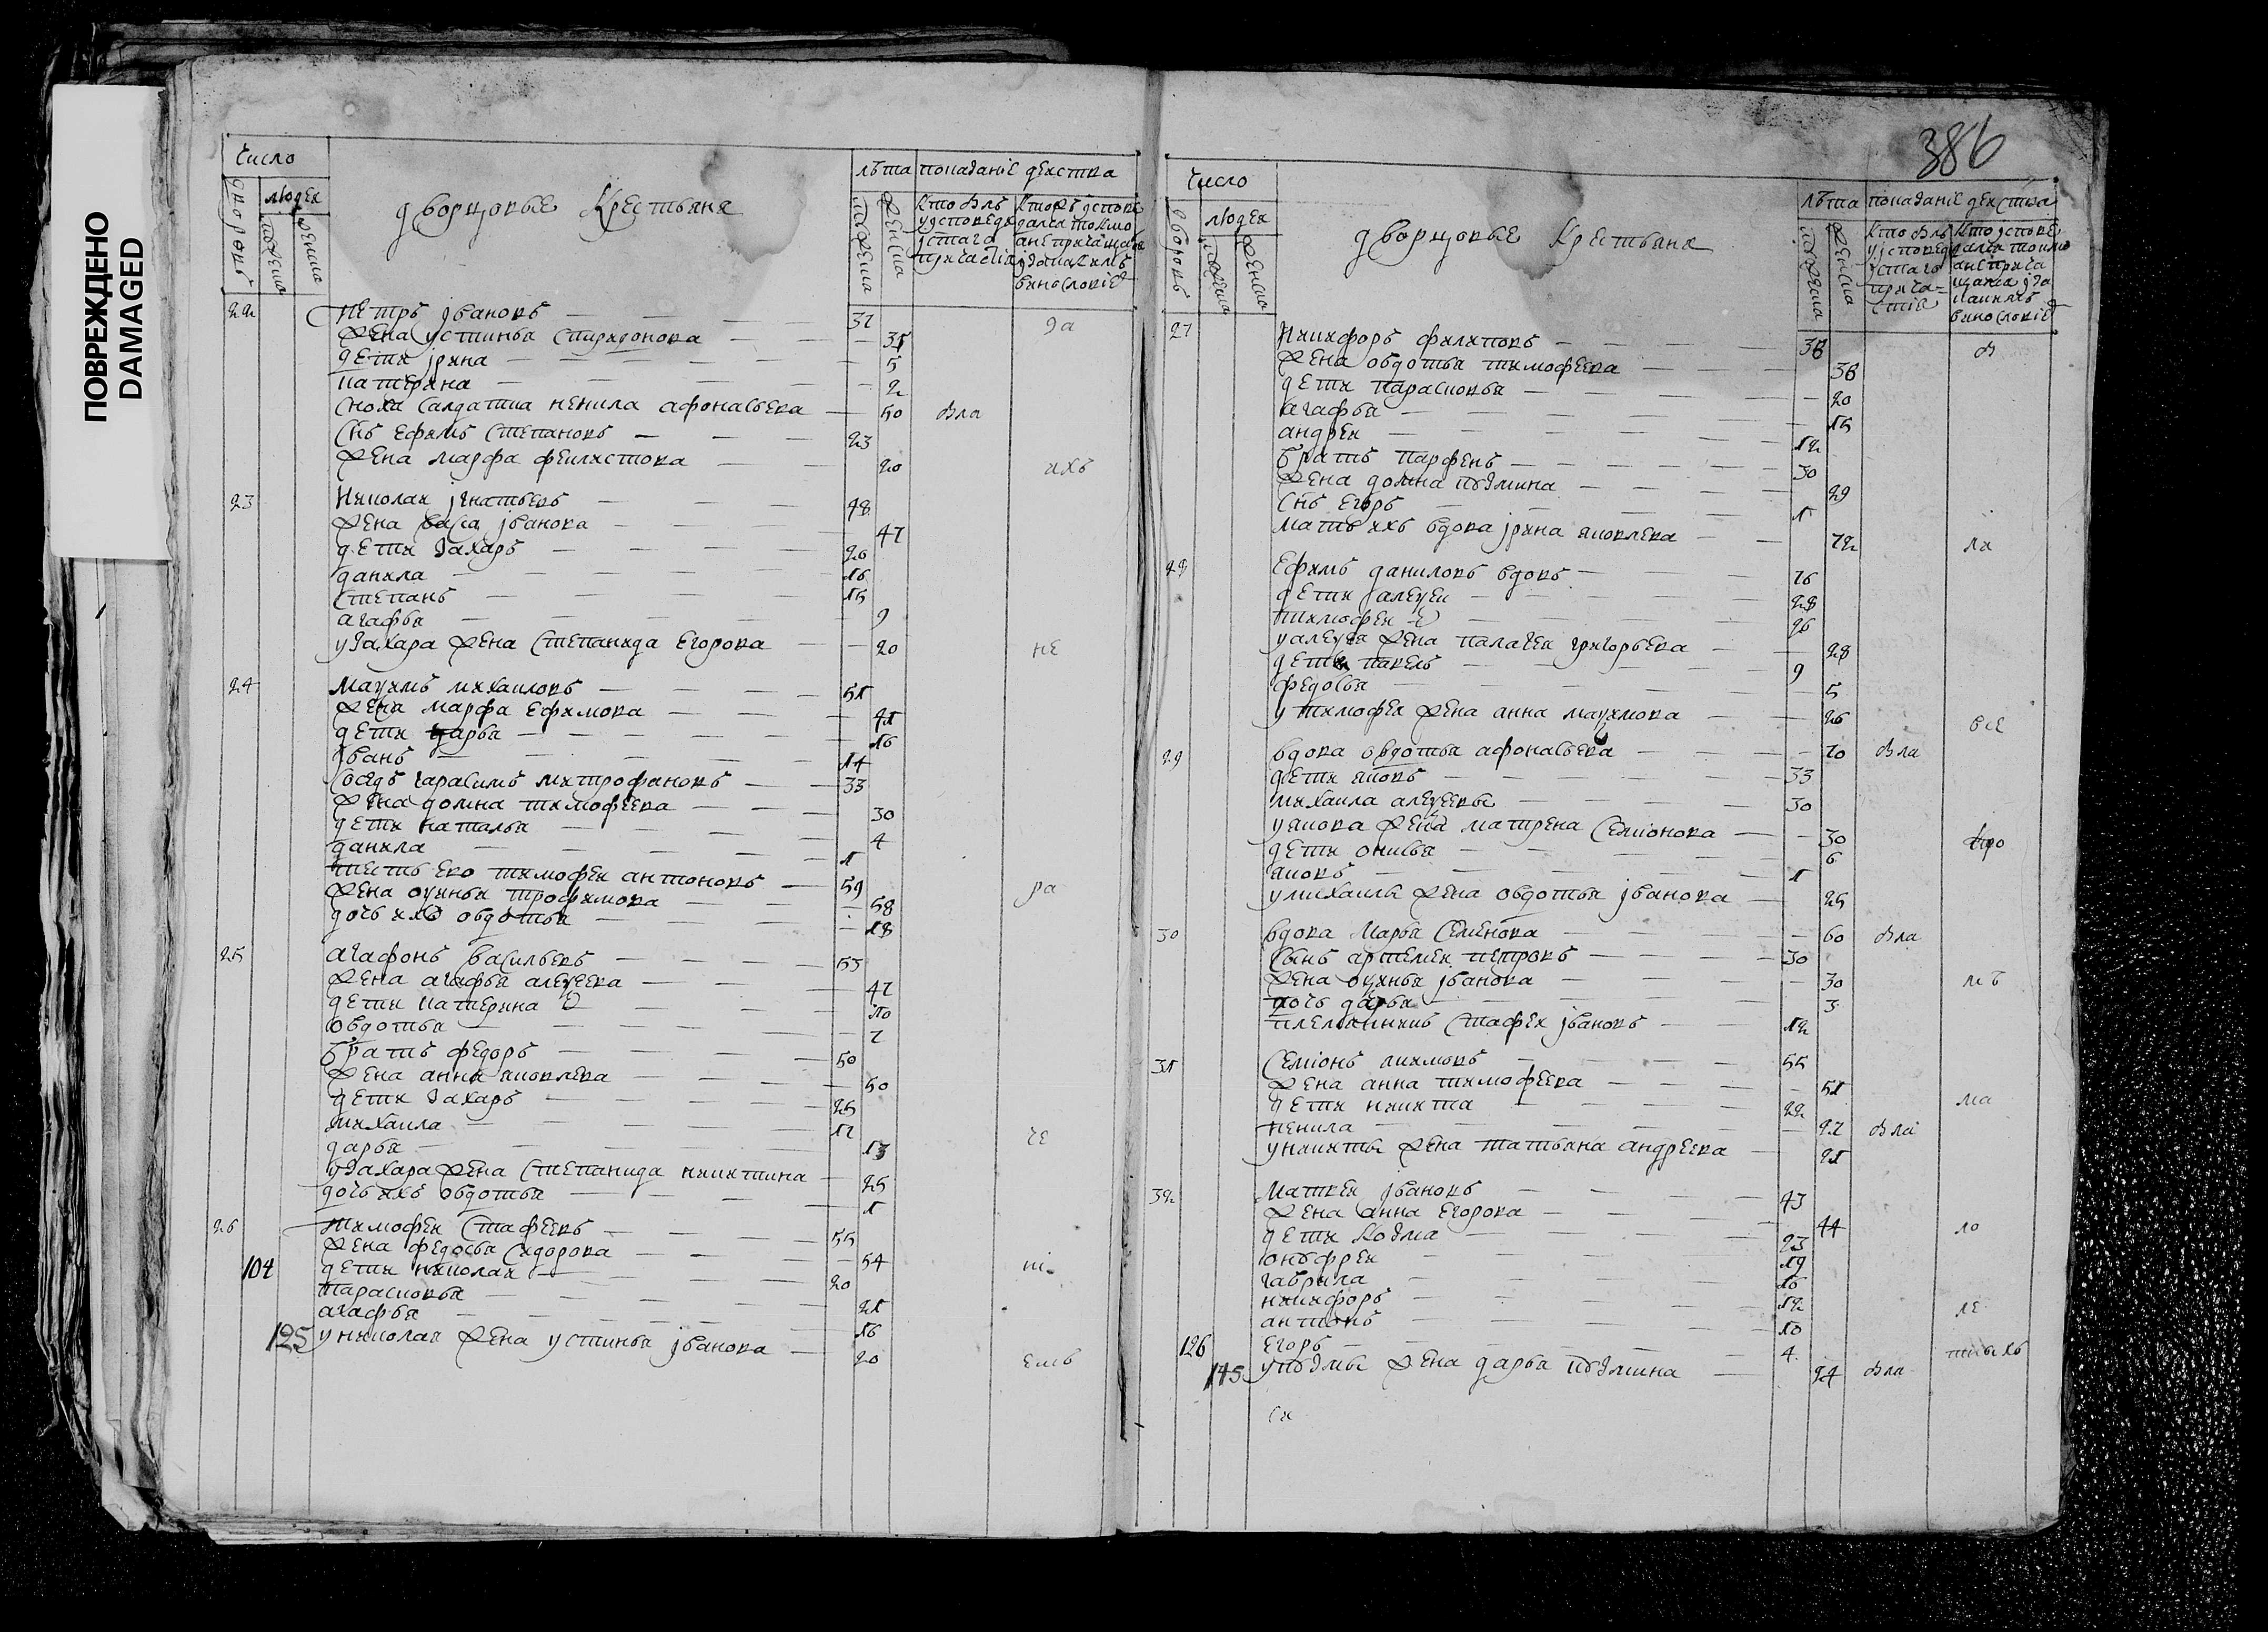 ПОВРЕЖДЕНО
DAMAGED
число
лѣта показаніе действа
дворовъ
людей
мужеска
женска
дворцовые Крестьяня
мужеска
женска
22 петръ ивановъ — 37
жена устинья спиридонова — 35
дети ирина — 5
катерина — 2
сноха салдатка ненила афонасьева — 50 была
снъ ефимъ степановъ — 23
жена марфа феклистова — 20
23 николаи игнатьевъ — 48
жена васса иванова — 47
дети захаръ — 20
данила — 16
степанъ — 15
агафья — 9
у захара жена степанида егорова — 20 не
24 маѯимъ михаиловъ — 51
жена марфа ефимова — 41
дети дарья — 16
иванъ — 14
соседъ гарасимъ митрофановъ — 33
жена домна тимофеева — 30
дети наталья — 4
данила — 1
тесть ево тимофеи антоновъ — 59
жена оѯинья трофимова — 58 ра
дочь ихъ овдотья — 18
25 агафонъ васильевъ — 53
жена агафья алеѯеева — 47
дети катерина — 10
овдотья — 7
братъ федоръ — 50
жена анна яковлева — 50
дети захаръ — 25
михаила — 17
дарья — 13
у захара жена степанида никитина — 25
дочь ихъ овдотья — 1
26 тимофеи стафеевъ — 55
жена федосья сидорова — 54
104 дети николаи — 20
парасковья — 21
агафья — 16
125 у николая жена устинья иванова — 20
386
число
лѣта показаніе действа
дворовъ
людей
мужеска
женска
дворцовые Крестьяня
мужеска
женска
27 никифоръ филиповъ — 38
жена овдотья тимофеева — 38
дети парасковья — 20
агафья — 15
андреи — 12
братъ парфенъ — 30
жена домна козмина — 29
снъ егоръ — 1
мать ихъ вдова ирина яковлева — 72
28 ефимъ даниловъ вдовъ — 76
дети алеѯеи — 28
тимофеи — 26
у алеѯея жена палагея григорьева — 28
дети павелъ — 9
федосья — 5
у тимофея жена анна маѯимова — 26
29 вдова овдотья афонасьева — 70 была
дети яковъ — 33
михаила алеѯеевы — 30
у якова жена матрена семіонова — 30
дети онисья — 6
яковъ — 1
у михаилы жена овдотья иванова — 25
30 вдова Марья семенова — 60 была
сынъ артемеи петровъ — 30
жена оѯинья иванова — 30
дочь дарья — 3
племянникъ стафеи ивановъ — 12
31 семіонъ акимовъ — 55
жена анна тимофеева — 51
дети никита — 22
ненила — 27 была
у никиты жена татьяна андреева — 21
32 матвеи ивановъ — 43
жена анна егорова — 44
дети козма — 23
онофреи — 19
гаврила — 16
никифоръ — 12
антонъ — 10
126 егоръ — 4
145 у козмы жена дарья козмина — 24 была